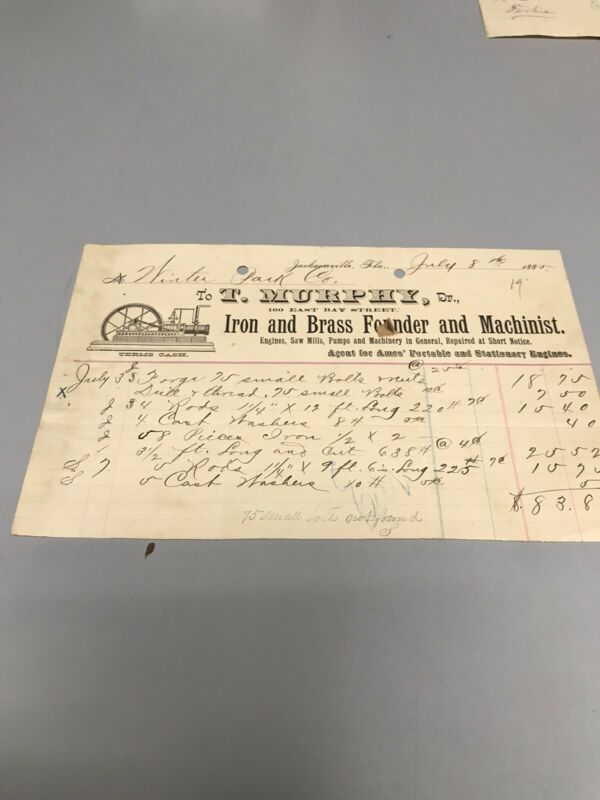 Jacksonville, Fla., July 8th 1885.
M Winter Park Co. 19
To T. MURPHY, Dr.,
100 EAST BAY STREET.
Iron and Brass Founder and Machinist.
Engines, Saw Mills, Pumps and Machinery in General, Repaired at Short Notice.
TERMS CASH.
Agent for Ames' Portable and Stationary Engines.
July 3 Forge 75 small Bolts & nuts @ 25c 18 75
x Drill & thread, 75 small Bolts 10c 7 50
3 4 Rods 1 1/4" X 12 ft. Long 220 # 7c 15 40
4 Cast Washers 8 # 5c 40
58 Pieces Iron 1/2 X 2
3 1/2 ft. Long and Cut 638 # @ 4c 25 52
7 5 Rods 1 1/4" X 9 ft. 6 in. Long 225 # 7c 15 75
5 Cast Washers 10 # 5c 5
$ 83.8
75 small bolts not found